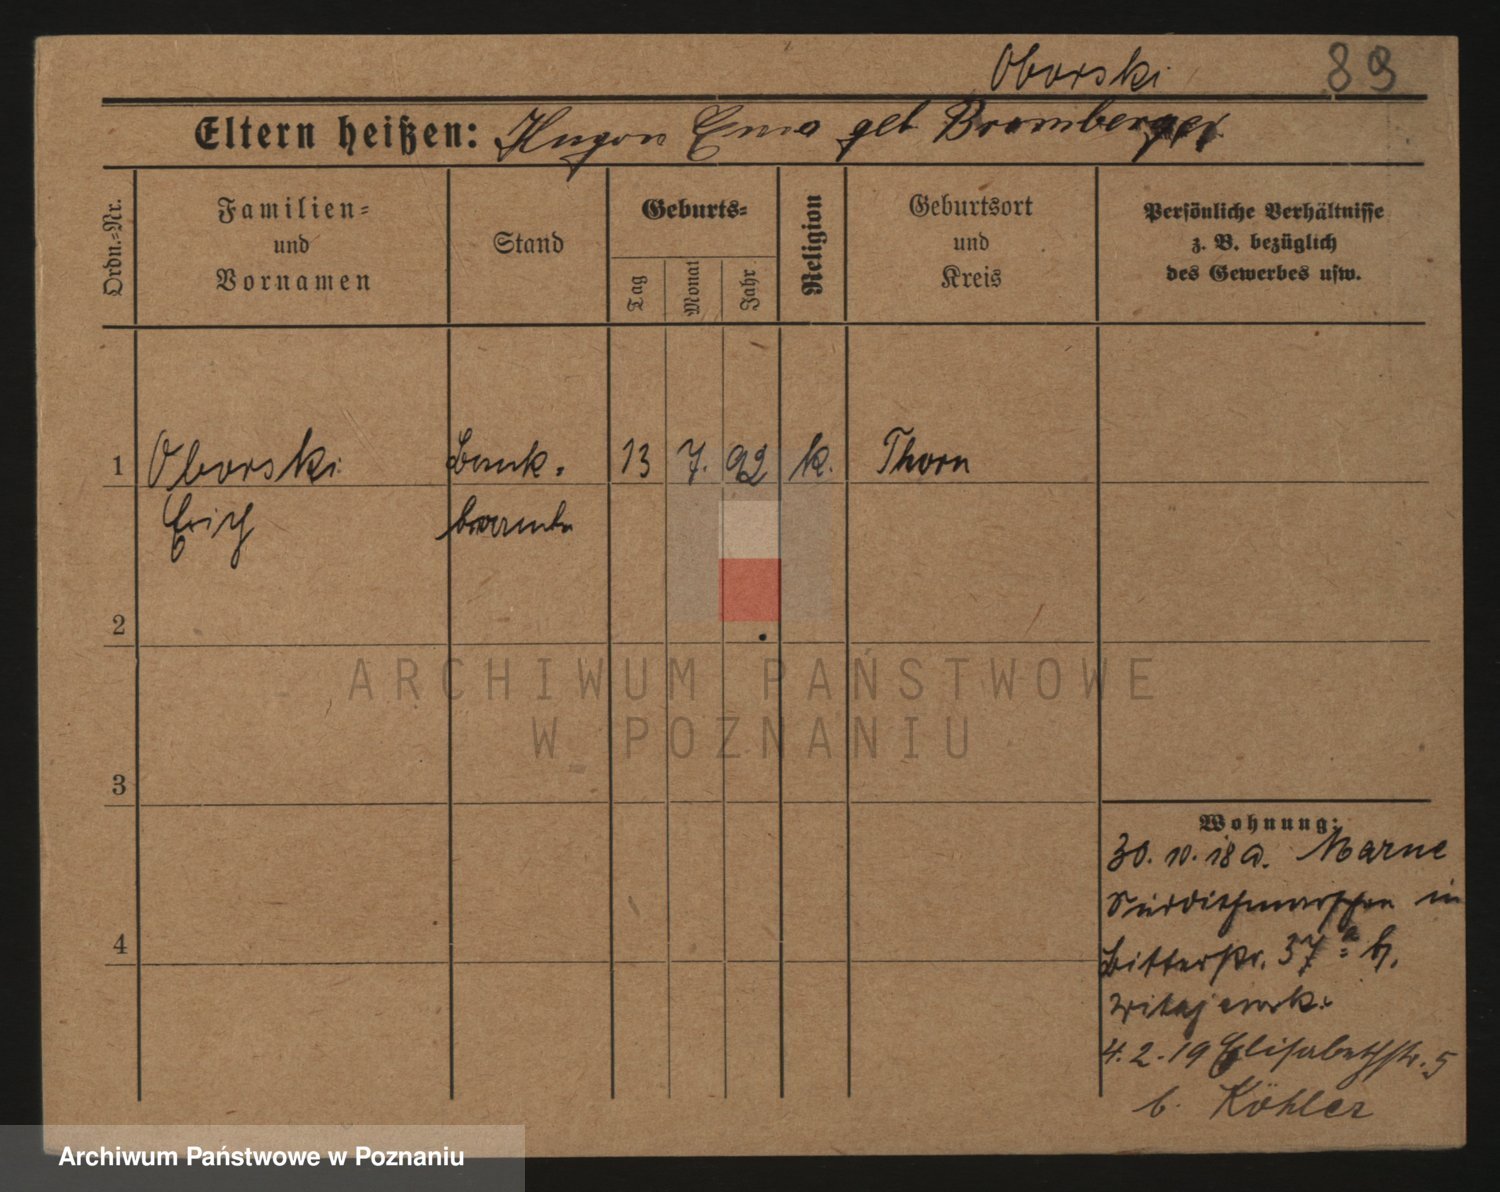 Oborski
89
Eltern heißen: Hugon Ema geb Bromberger
Ordn.-Nr.
Familien-
und
Vornamen
Stand
Geburts-
Tag
Monat
Jahr
Religion
Geburtsort
und
Kreis
Persönliche Verhältnisse
z. B. bezüglich
des Gewerbes usw.
1 Oborski Bank- 13 7. 92 k. Thorn
Erich beamter
2
3
4
Wohnung:
30. 10. 18 a. Marne
Süderdithmarschen in
Bitterstr. 37 a b.
4. 2. 19 Elisabethstr. 5
b. Köhler
ARCHIWUM PAŃSTWOWE
W POZNANIU
Archiwum Państwowe w Poznaniu